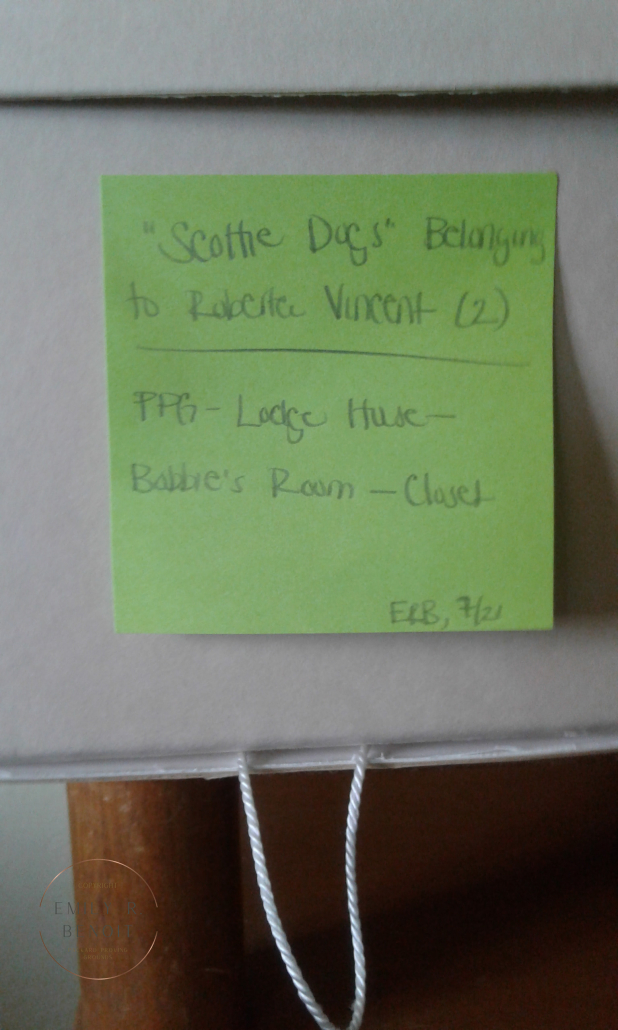 "Scottie Dogs" Belonging
to Roberta Vincent (2)
PPG - Lodge House -
Bobbie's Room - Closet
ERB, 7/21